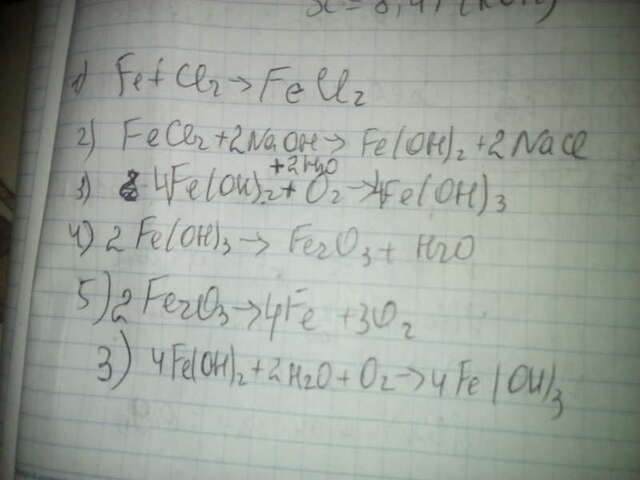 1) Fe + Cl₂ → FeCl₂
2) FeCl₂ + 2NaOH → Fe(OH)₂ + 2NaCl
+ 2H₂O
3) 4Fe(OH)₂ + O₂ → 4Fe(OH)₃
4) 2Fe(OH)₃ → Fe₂O₃ + H₂O
5) 2Fe₂O₃ → 4Fe + 3O₂
3) 4Fe(OH)₂ + 2H₂O + O₂ → 4Fe(OH)₃